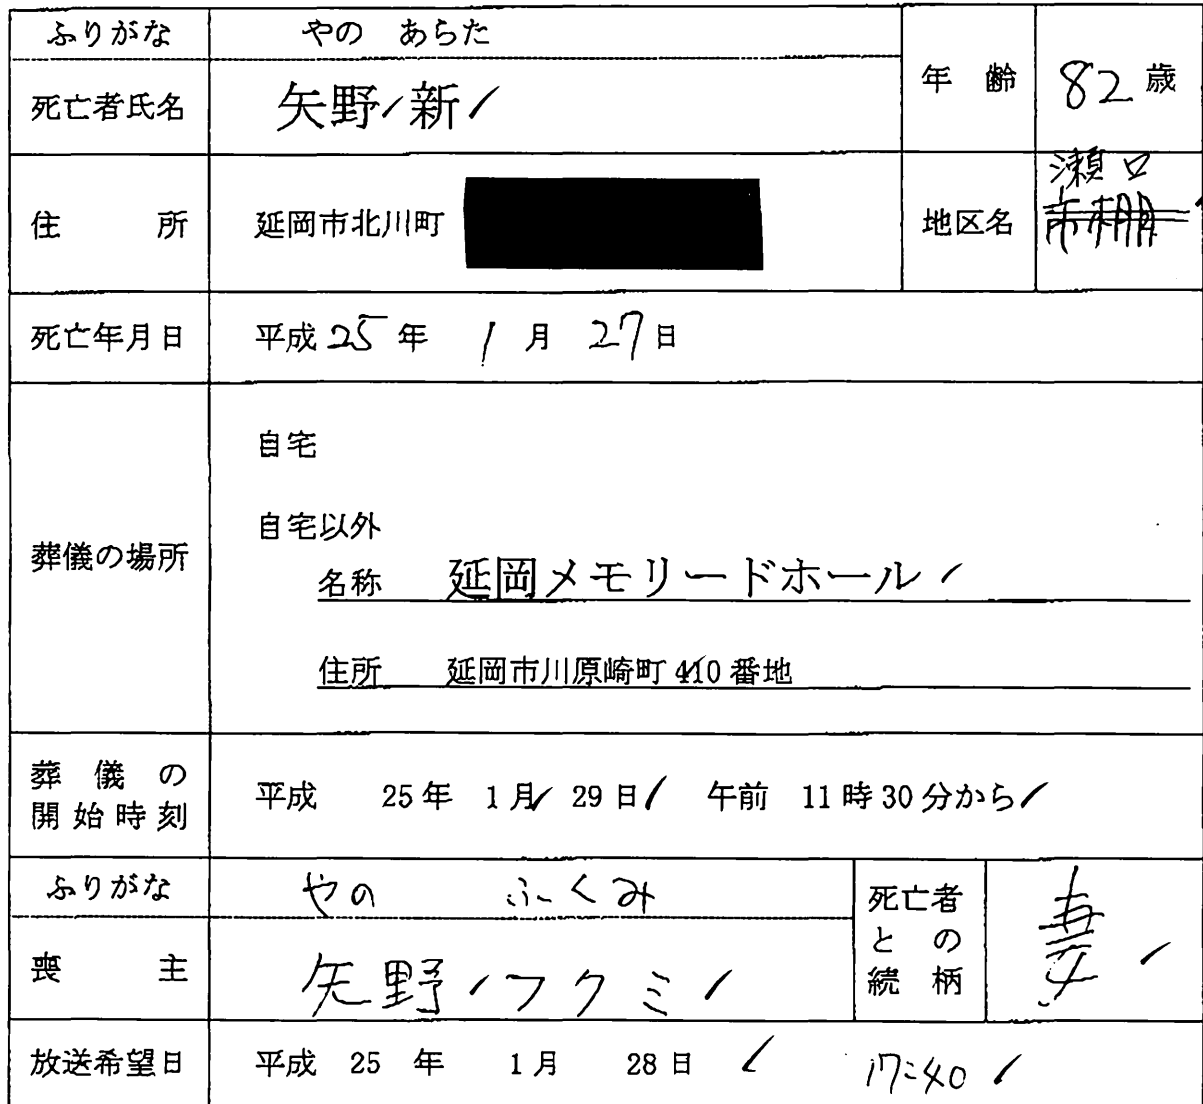 ふりがな やの あらた
死亡者氏名 矢野 新
年齢 82歳
住所 延岡市北川町
地区名 瀬口
市棚
死亡年月日 平成25年 1月 27日
葬儀の場所
自宅
自宅以外
名称 延岡メモリードホール
住所 延岡市川原崎町410番地
葬儀の
開始時刻
平成 25年 1月 29日 午前 11時30分から
ふりがな やの ふくみ
喪主 矢野 フクミ
死亡者
との
続柄
妻
放送希望日 平成 25 年 1月 28日 17:40